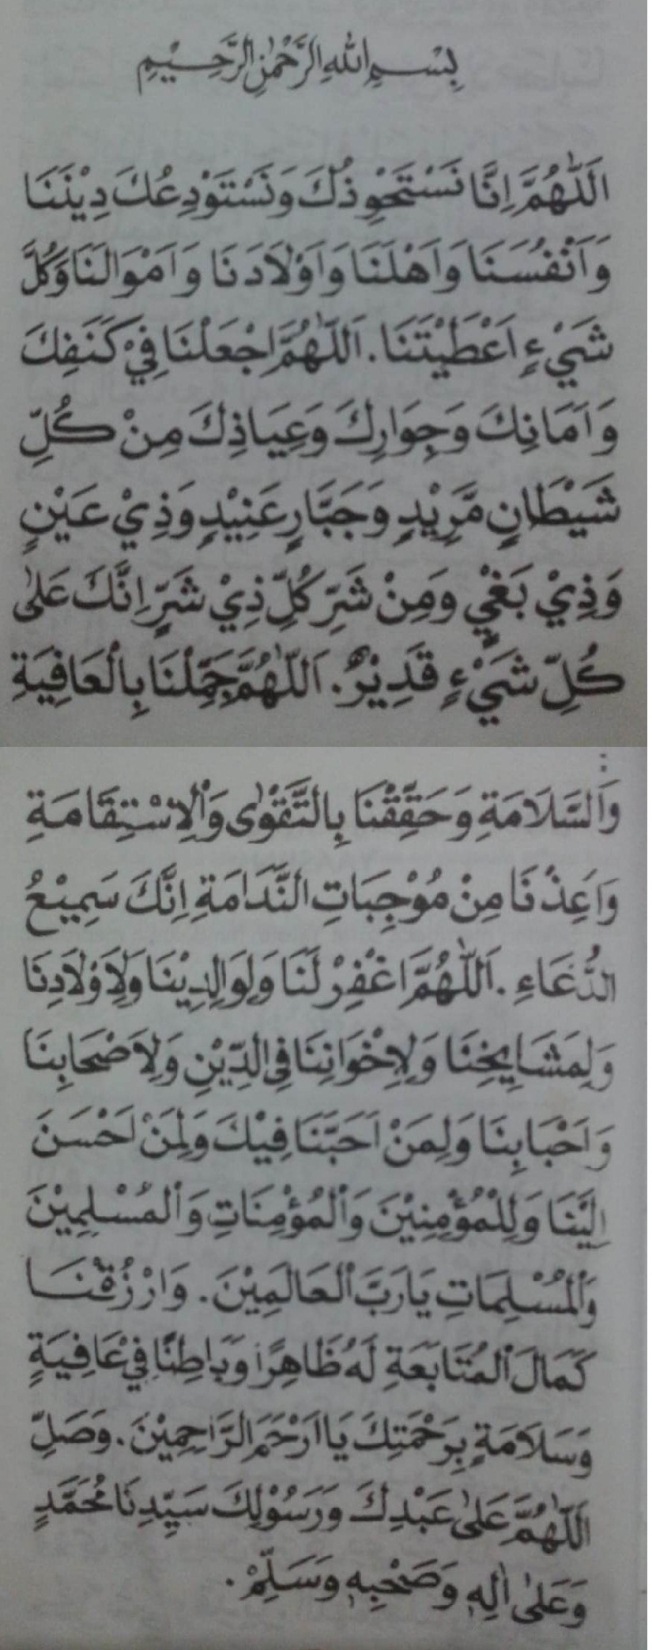 بِسْمِ اللهِ الرَّحْمٰنِ الرَّحِيْمِ
اَللّٰهُمَّ اِنَّا نَسْتَحْوِذُكَ وَنَسْتَوْدِعُكَ دِيْنَنَا
وَاَنْفُسَنَا وَاَهْلَنَا وَاَوْلَادَنَا وَاَمْوَالَنَا وَكُلَّ
شَيْءٍ اَعْطَيْتَنَا. اَللّٰهُمَّ اجْعَلْنَا فِيْ كَنَفِكَ
وَاَمَانِكَ وَجِوَارِكَ وَعِيَاذِكَ مِنْ كُلِّ
شَيْطَانٍ مَّرِيْدٍ وَجَبَّارٍ عَنِيْدٍ وَذِيْ عَيْنٍ
وَذِيْ بَغْيٍ وَمِنْ شَرِّ كُلِّ ذِيْ شَرٍّ اِنَّكَ عَلٰى
كُلِّ شَيْءٍ قَدِيْرٌ. اَللّٰهُمَّ جَمِّلْنَا بِالْعَافِيَةِ
وَالسَّلَامَةِ وَحَقِّقْنَا بِالتَّقْوٰى وَالْاِسْتِقَامَةِ
وَاَعِذْنَا مِنْ مُوْجِبَاتِ النَّدَامَةِ اِنَّكَ سَمِيْعُ
الدُّعَاءِ. اَللّٰهُمَّ اغْفِرْ لَنَا وَلِوَالِدِيْنَا وَلِاَوْلَادِنَا
وَلِمَشَايِخِنَا وَلِاِخْوَانِنَا فِى الدِّيْنِ وَلِاَصْحَابِنَا
وَاَحْبَابِنَا وَلِمَنْ اَحَبَّنَا فِيْكَ وَلِمَنْ اَحْسَنَ
اِلَيْنَا وَلِلْمُؤْمِنِيْنَ وَالْمُؤْمِنَاتِ وَالْمُسْلِمِيْنَ
وَالْمُسْلِمَاتِ يَارَبَّ الْعَالَمِيْنَ. وَارْزُقْنَا
كَمَالَ الْمُتَابَعَةِ لَهُ ظَاهِرًا وَبَاطِنًا فِيْ عَافِيَةٍ
وَسَلَامَةٍ بِرَحْمَتِكَ يَا اَرْحَمَ الرَّاحِمِيْنَ. وَصَلِّ
اَللّٰهُمَّ عَلٰى عَبْدِكَ وَرَسُوْلِكَ سَيِّدِنَا مُحَمَّدٍ
وَعَلٰى اٰلِهِ وَصَحْبِهِ وَسَلِّمْ.